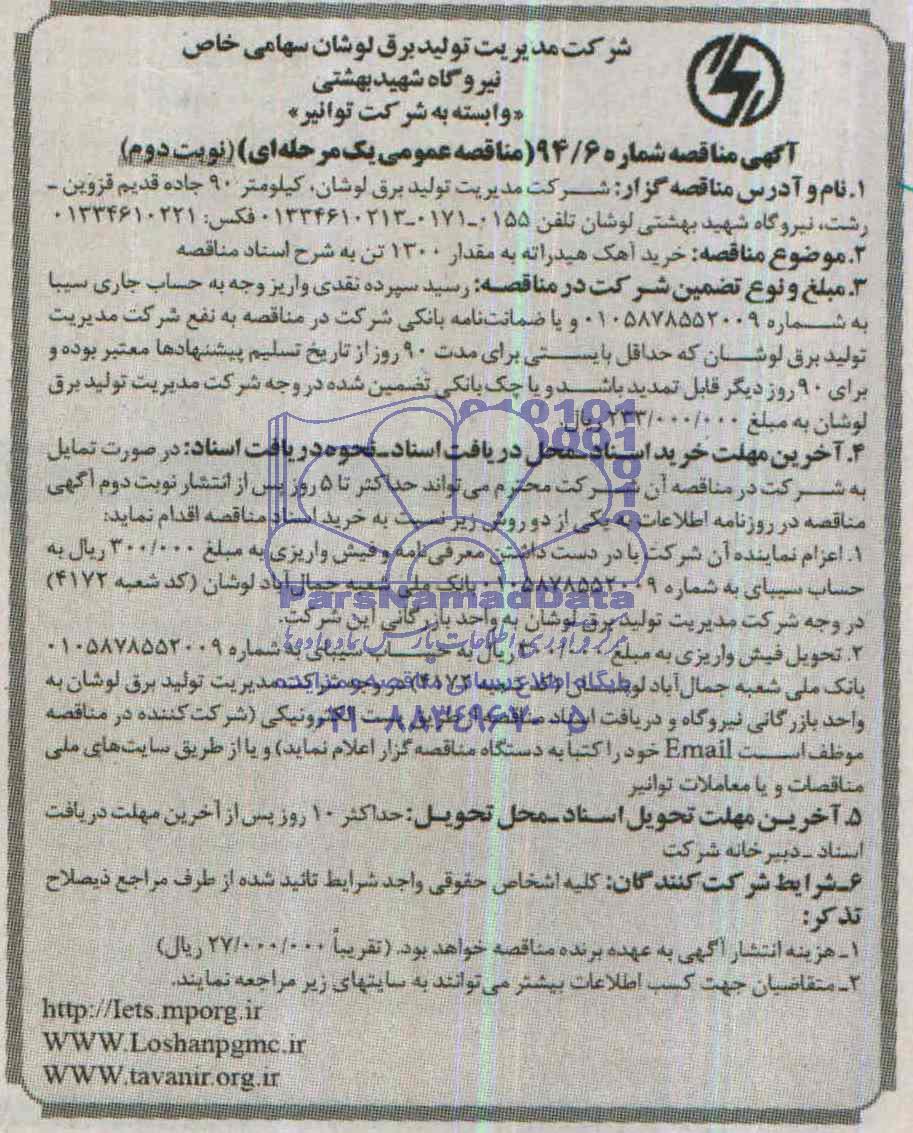 شرکت مدیریت تولید برق لوشان سهامی خاص
نیروگاه شهید بهشتی
«وابسته به شرکت توانیر»
آگهی مناقصه شماره ۹۴/۶ (مناقصه عمومی یک مرحله‌ای) (نوبت دوم)
۱. نام و آدرس مناقصه گزار: شرکت مدیریت تولید برق لوشان، کیلومتر ۹۰ جاده قدیم قزوین ـ
رشت، نیروگاه شهید بهشتی لوشان تلفن ۰۱۵۵ـ۰۱۷۱ـ۰۱۳۳۴۶۱۰۲۱۳ فکس: ۰۱۳۳۴۶۱۰۲۲۱
۲. موضوع مناقصه: خرید آهک هیدراته به مقدار ۱۳۰۰ تن به شرح اسناد مناقصه
۳. مبلغ و نوع تضمین شرکت در مناقصه: رسید سپرده نقدی واریز وجه به حساب جاری سیبا
به شماره ۰۱۰۵۸۷۸۵۵۲۰۰۹ و یا ضمانت‌نامه بانکی شرکت در مناقصه به نفع شرکت مدیریت
تولید برق لوشان که حداقل بایستی برای مدت ۹۰ روز از تاریخ تسلیم پیشنهادها معتبر بوده و
برای ۹۰ روز دیگر قابل تمدید باشد و یا چک بانکی تضمین شده در وجه شرکت مدیریت تولید برق
لوشان به مبلغ ۲۳۳/۰۰۰/۰۰۰ ریال.
۴. آخرین مهلت خرید اسناد ـ محل دریافت اسناد ـ نحوه دریافت اسناد: در صورت تمایل
به شرکت در مناقصه آن شرکت محترم می‌تواند حداکثر تا ۵ روز پس از انتشار نوبت دوم آگهی
مناقصه در روزنامه اطلاعات به یکی از دو روش زیر نسبت به خرید اسناد مناقصه اقدام نماید:
۱. اعزام نماینده آن شرکت با در دست داشتن معرفی‌نامه و فیش واریزی به مبلغ ۳۰۰/۰۰۰ ریال به
حساب سیبای به شماره ۰۱۰۵۸۷۸۵۵۲۰۰۹ بانک ملی شعبه جمال‌آباد لوشان (کد شعبه ۴۱۷۲)
در وجه شرکت مدیریت تولید برق لوشان به واحد بازرگانی این شرکت.
۲. تحویل فیش واریزی به مبلغ ریال به حساب سیبای به شماره ۰۱۰۵۸۷۸۵۵۲۰۰۹
بانک ملی شعبه جمال‌آباد لوشان (کد شعبه ۴۱۷۲) در وجه شرکت مدیریت تولید برق لوشان به
واحد بازرگانی نیروگاه و دریافت اسناد مناقصه از طریق پست الکترونیکی (شرکت‌کننده در مناقصه
موظف است Email خود را کتباً به دستگاه مناقصه‌گزار اعلام نماید) و یا از طریق سایت‌های ملی
مناقصات و یا معاملات توانیر
۵. آخرین مهلت تحویل اسناد ـ محل تحویل: حداکثر ۱۰ روز پس از آخرین مهلت دریافت
اسناد ـ دبیرخانه شرکت
۶ـ شرایط شرکت کنندگان: کلیه اشخاص حقوقی واجد شرایط تائید شده از طرف مراجع ذیصلاح
تذکر:
۱ـ هزینه انتشار آگهی به عهده برنده مناقصه خواهد بود. (تقریباً ۲۷/۰۰۰/۰۰۰ ریال)
۲ـ متقاضیان جهت کسب اطلاعات بیشتر می‌توانند به سایتهای زیر مراجعه نمایند.
http://Iets.mporg.ir
WWW.Loshanpgmc.ir
WWW.tavanir.org.ir
ParsNamadData
مرکز فرآوری اطلاعات پارس نماد داده‌ها
پایگاه اطلاع رسانی مناقصه و مزایده
۰۲۱-۸۸۳۴۹۶۷۰-۵